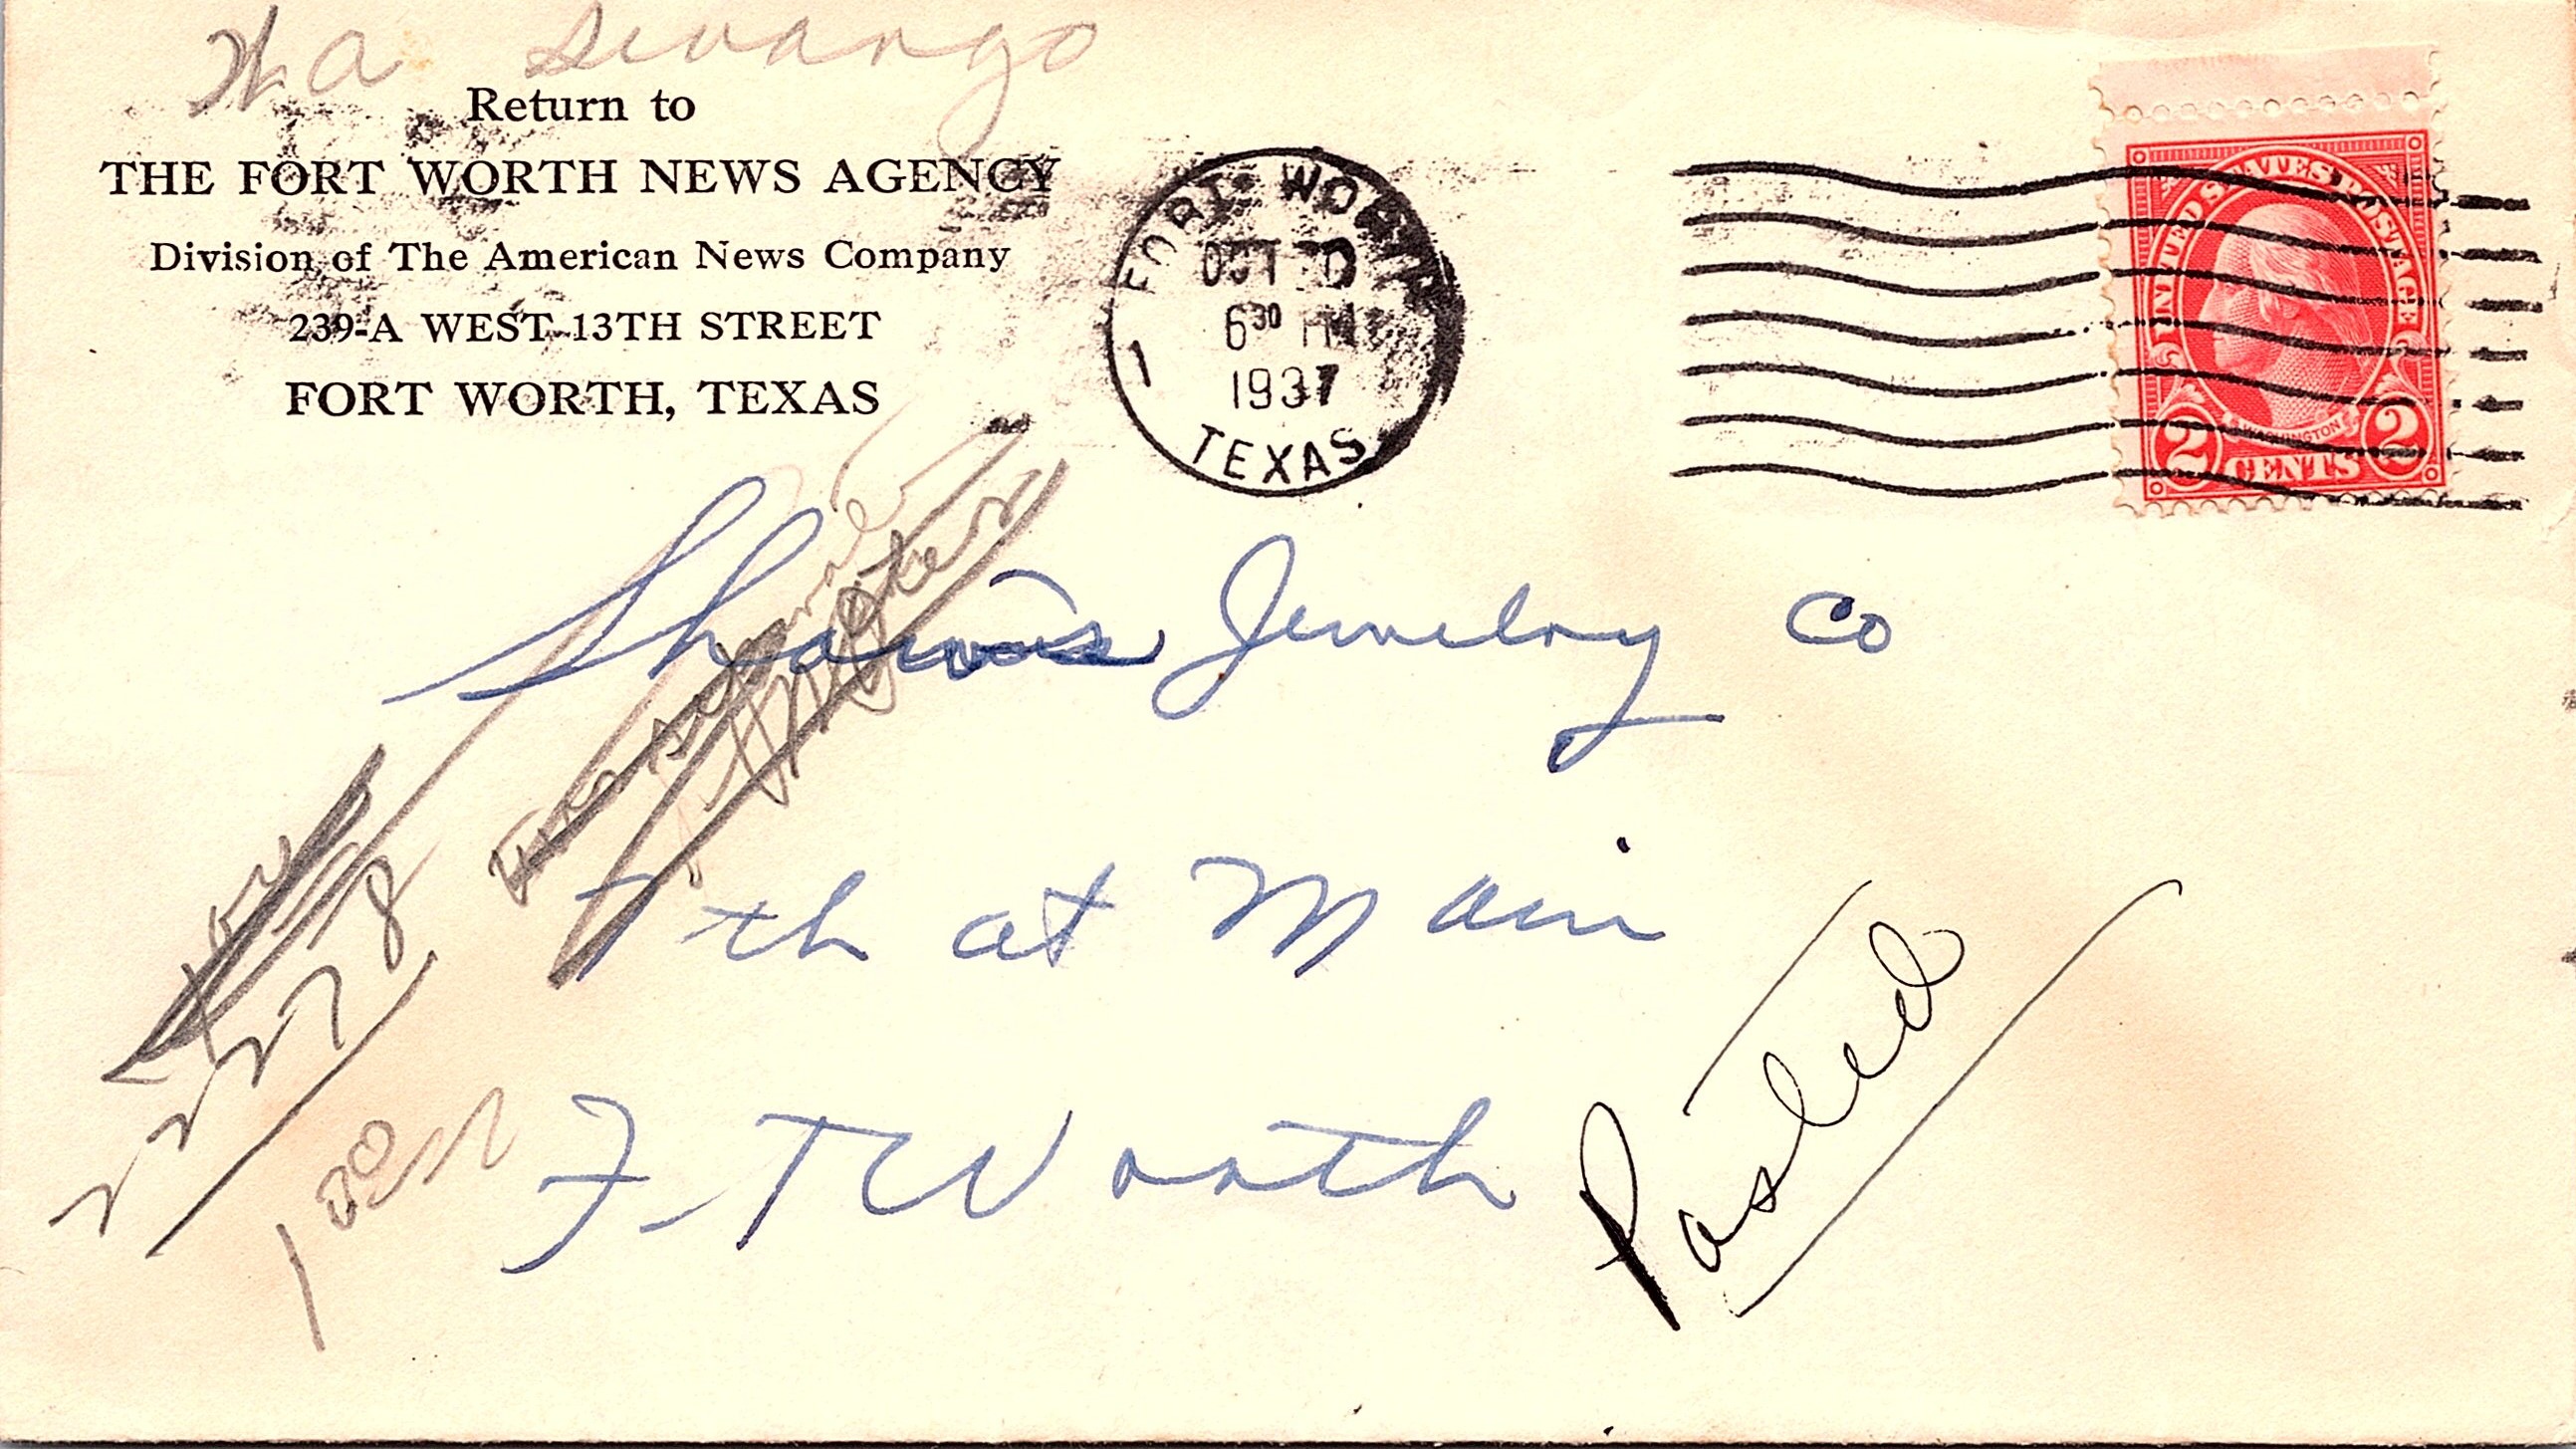 Return to
THE FORT WORTH NEWS AGENCY
Division of The American News Company
239-A WEST 13TH STREET
FORT WORTH, TEXAS
FORT WORTH
OCT
6 30 PM
1937
1
TEXAS
UNITED STATES POSTAGE
WASHINGTON
2 CENTS 2
Shaw's Jewelry Co
7th at Main
Ft Worth
Posted